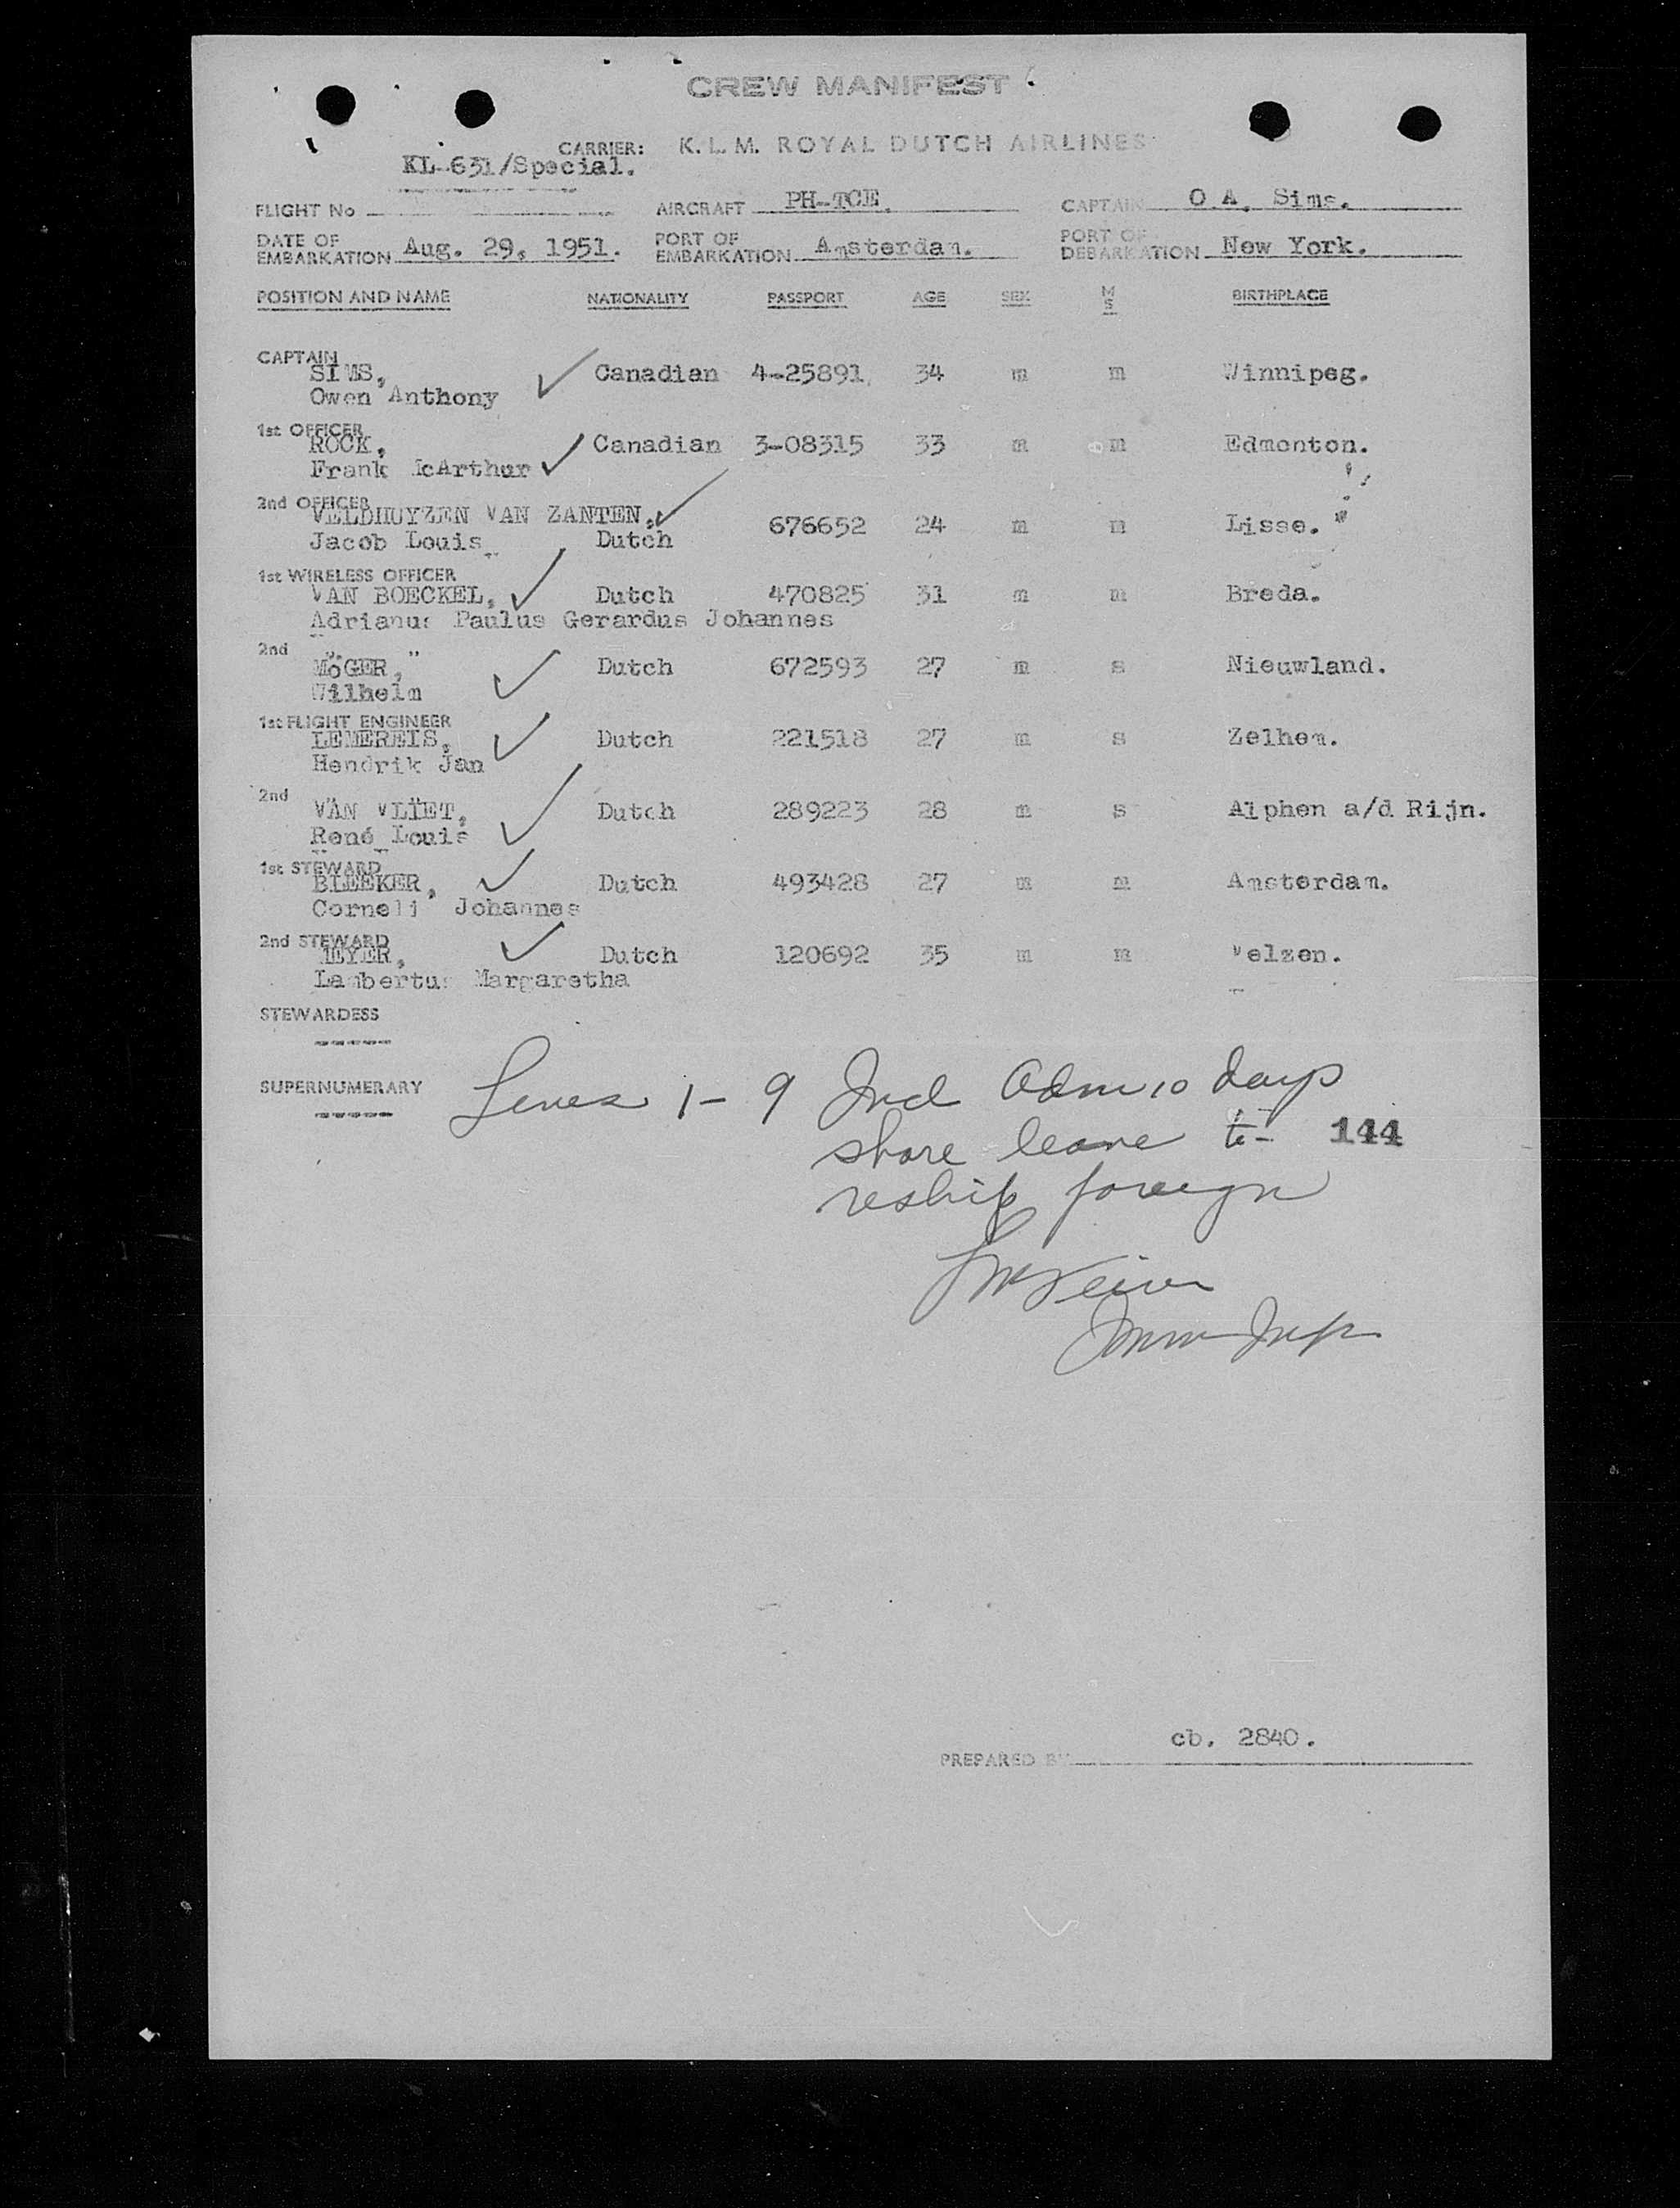 CREW MANIFEST
CARRIER: K.L.M. ROYAL DUTCH AIRLINES
KL-631/Special.
FLIGHT No AIRCRAFT PH-TCE. CAPTAIN O.A. Sims.
DATE OF EMBARKATION Aug. 29, 1951. PORT OF EMBARKATION Amsterdam. PORT OF DEBARKATION New York.
POSITION AND NAME NATIONALITY PASSPORT AGE SEX M S BIRTHPLACE
CAPTAIN
SIMS, Canadian 4-25891 34 m m Winnipeg.
Owen Anthony
1st OFFICER
ROCK, Canadian 3-08315 33 m m Edmonton.
Frank McArthur
2nd OFFICER
VELDHUYZEN VAN ZANTEN, 676652 24 m m Lisse.
Jacob Louis Dutch
1st WIRELESS OFFICER
VAN BOECKEL, Dutch 470825 31 m m Breda.
Adrianus Paulus Gerardus Johannes
2nd " "
MöGER, Dutch 672593 27 m s Nieuwland.
Wilhelm
1st FLIGHT ENGINEER
LEMEREIS, Dutch 221518 27 m s Zelhem.
Hendrik Jan
2nd " "
VAN VLIET, Dutch 289223 28 m s Alphen a/d Rijn.
René Louis
1st STEWARD
BLEEKER, Dutch 493428 27 m m Amsterdam.
Corneli Johannes
2nd STEWARD
MEYER, Dutch 120692 35 m m Velzen.
Lambertus Margaretha
STEWARDESS
-----
SUPERNUMERARY
-----
Lines 1-9 Incl Adm 10 days
shore leave to- 144
reship foreign
Imm Insp
cb. 2840.
PREPARED BY